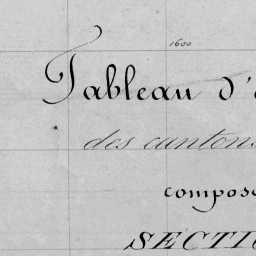 1600
Tableau d'
des cantons
compos
SECTIO